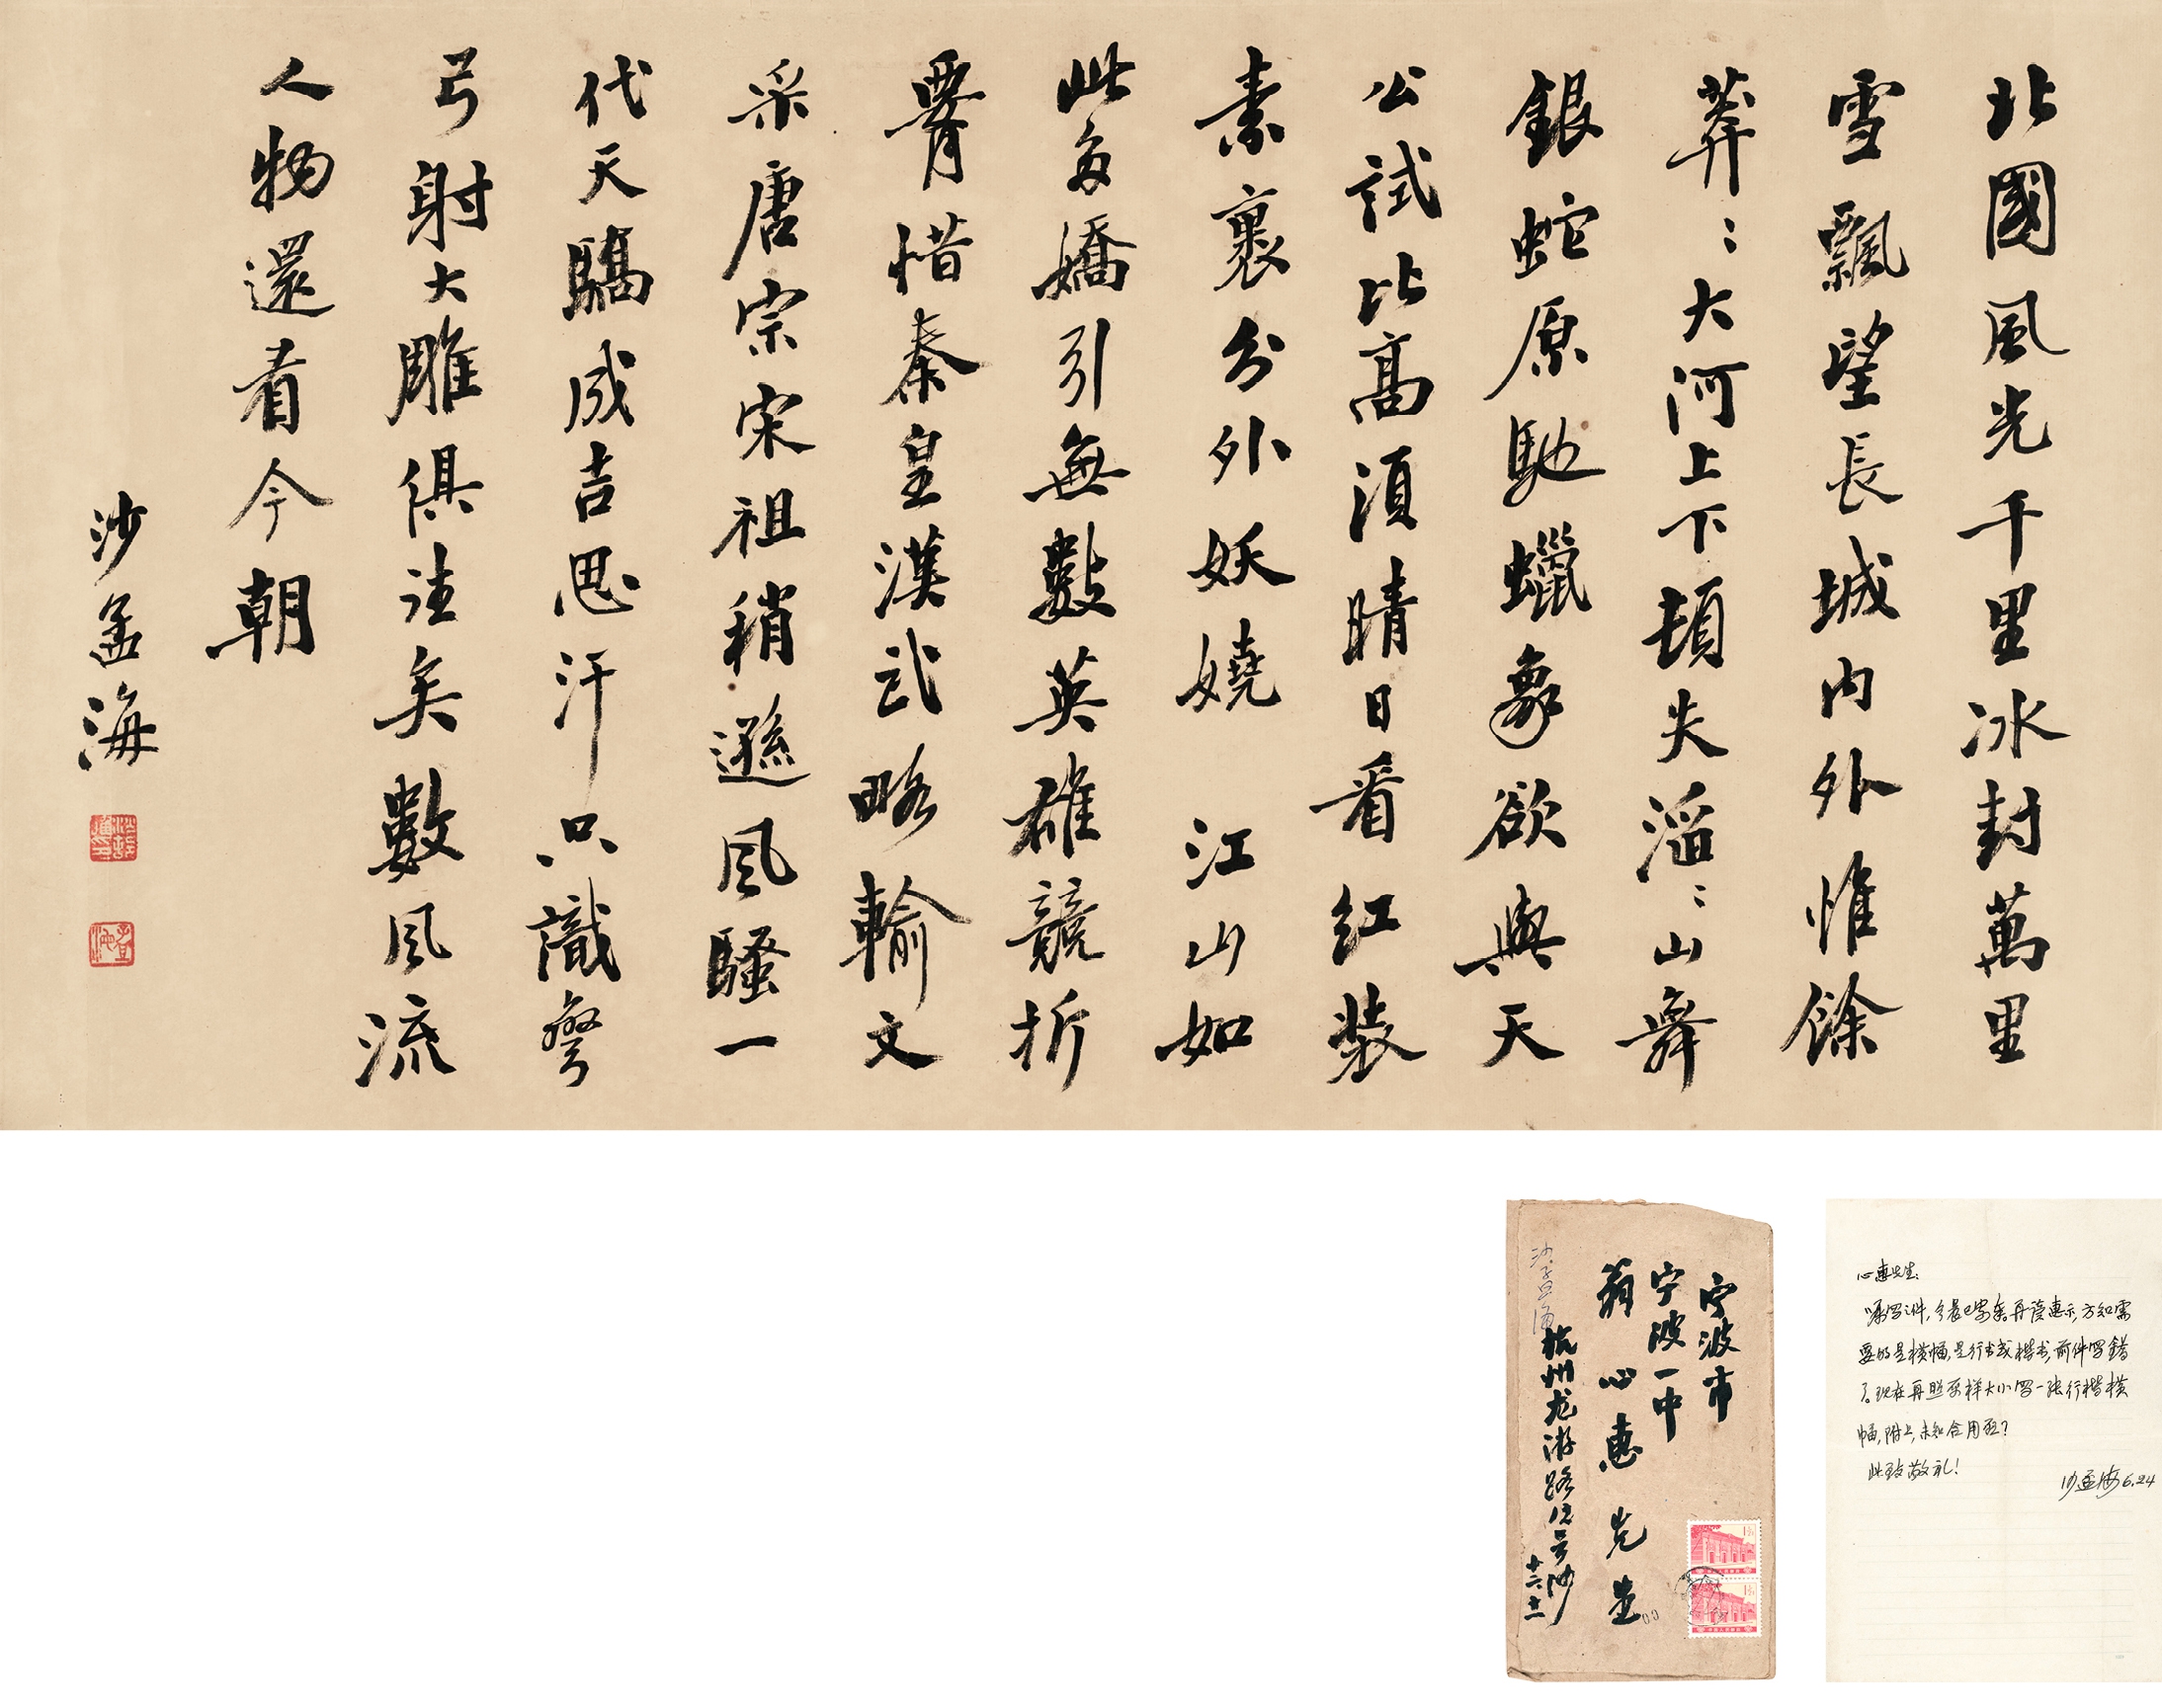 北國風光千里冰封萬里
雪飄望長城內外惟餘
莽〻大河上下頓失滔〻山舞
銀蛇原馳蠟象欲與天
公試比高須晴日看紅裝
素裹分外妖嬈 江山如
此多嬌引無數英雄競折
腰惜秦皇漢武略輸文
采唐宗宋祖稍遜風騷一
代天驕成吉思汗只識彎
弓射大雕俱往矣數風流
人物還看今朝
沙孟海
宁波市
宁波一中
翁心惠先生
杭州龙游路15号沙
沙孟海
心惠先生:
嘱写之件,今晨已寄奉。再读惠示,方知需
要的是横幅,是行书或楷书,前件写错
了。现在再照原样大小写一张行楷横
幅,附上,未知合用否?
此致敬礼!
沙孟海 6.24